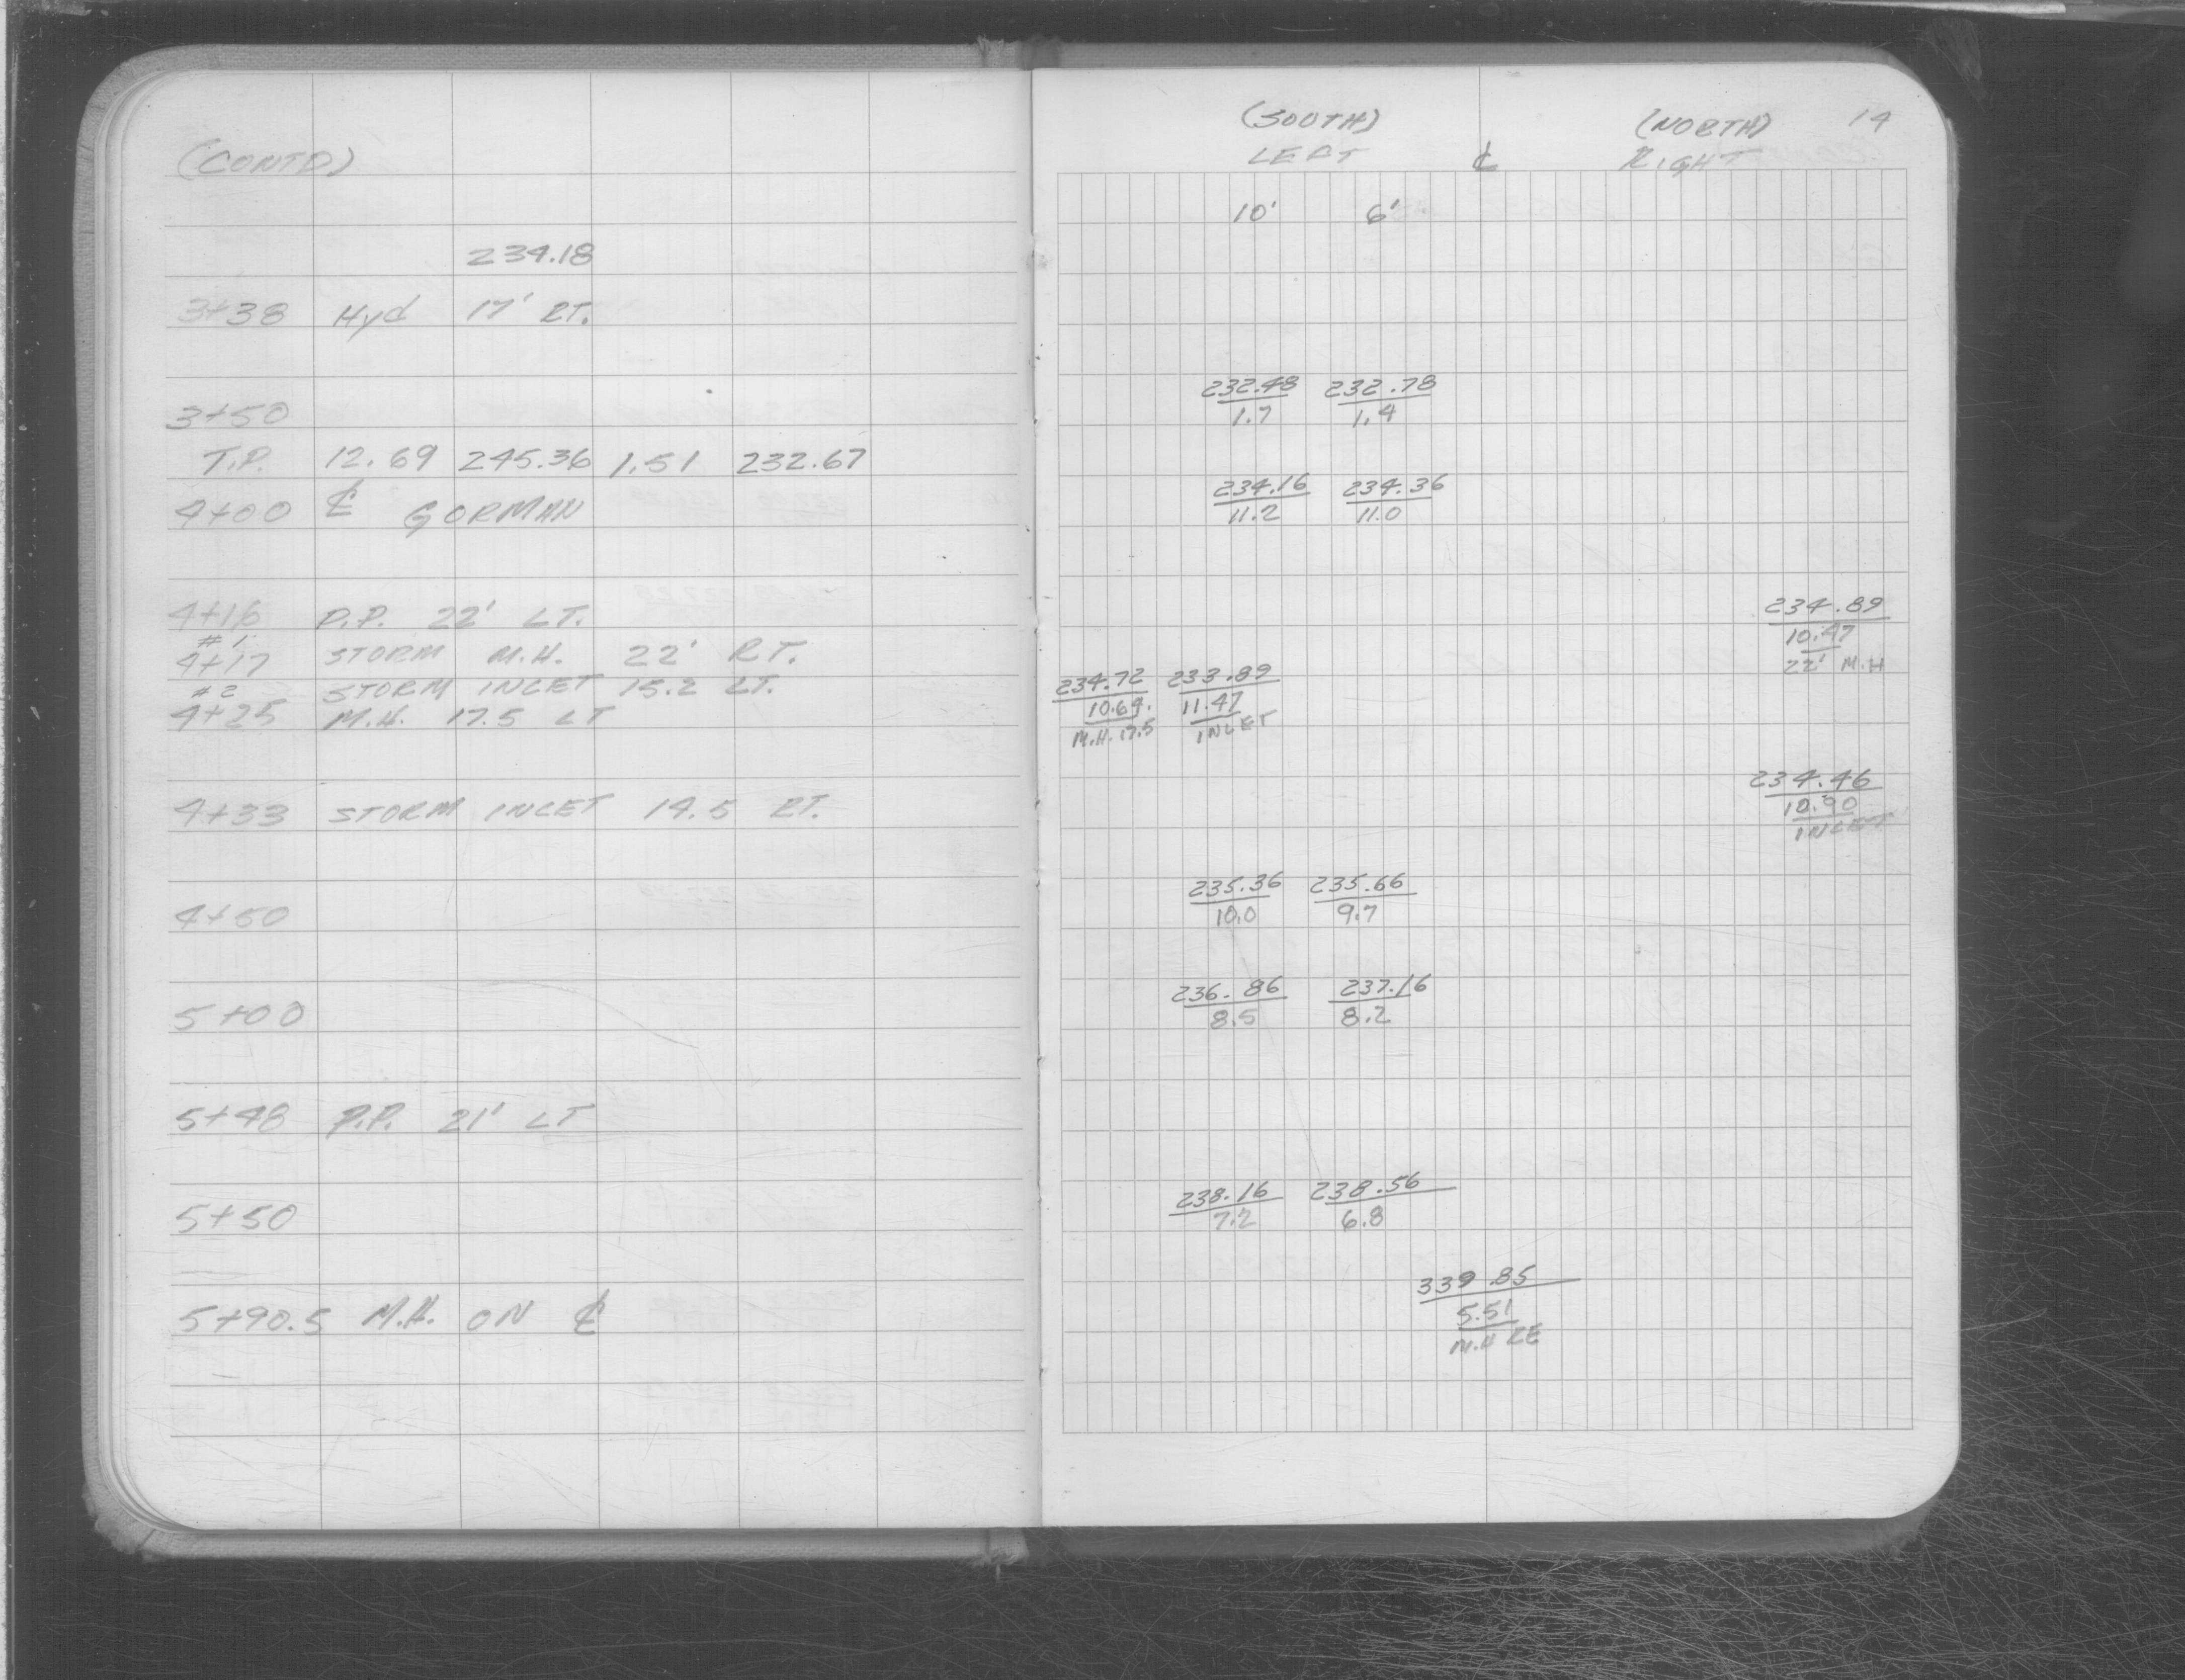 (CONTD)
234.18
3+38 Hyd 17' RT.
3+50
T.P. 12.69 245.36 1.51 232.67
4+00 ℄ GORMAN
4+16 P.P. 22' LT.
#1
4+17 STORM M.H. 22' RT.
#2 STORM INLET 15.2 LT.
4+25 M.H. 17.5 LT
4+33 STORM INLET 14.5 RT.
4+50
5+00
5+48 P.P. 21' LT
5+50
5+90.5 M.H. ON ℄
(SOUTH) (NORTH) 14
LEFT ℄ RIGHT
10' 6'
232.48 232.78
1.7 1.4
234.16 234.36
11.2 11.0
234.89
10.47
22' M.H
234.72 233.89
10.64 11.47
M.H. 17.5 INLET
234.46
10.90
INLET
235.36 235.66
10.0 9.7
236.86 237.16
8.5 8.2
238.16 238.56
7.2 6.8
339.85
5.51
M.H RE